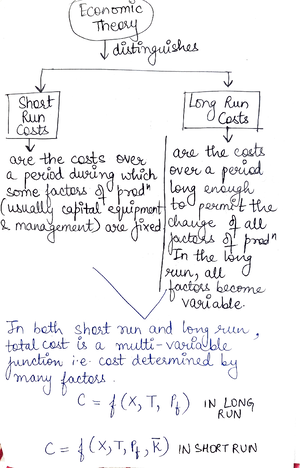 Economic
Theory
distinguishes
Short
Run
Costs
are the costs over
a period during which
some factors of prodⁿ
(usually capital equipment
& management) are fixed
Long Run
Costs
are the costs
over a period
long enough
to permit the
change of all
factors of prodⁿ
In the long
run, all
factors become
variable.
In both short run and long run,
total cost is a multi-variable
function i.e. cost determined by
many factors.
C = f (X, T, Pf) IN LONG
RUN
C = f (X, T, Pf, K̅) IN SHORT RUN